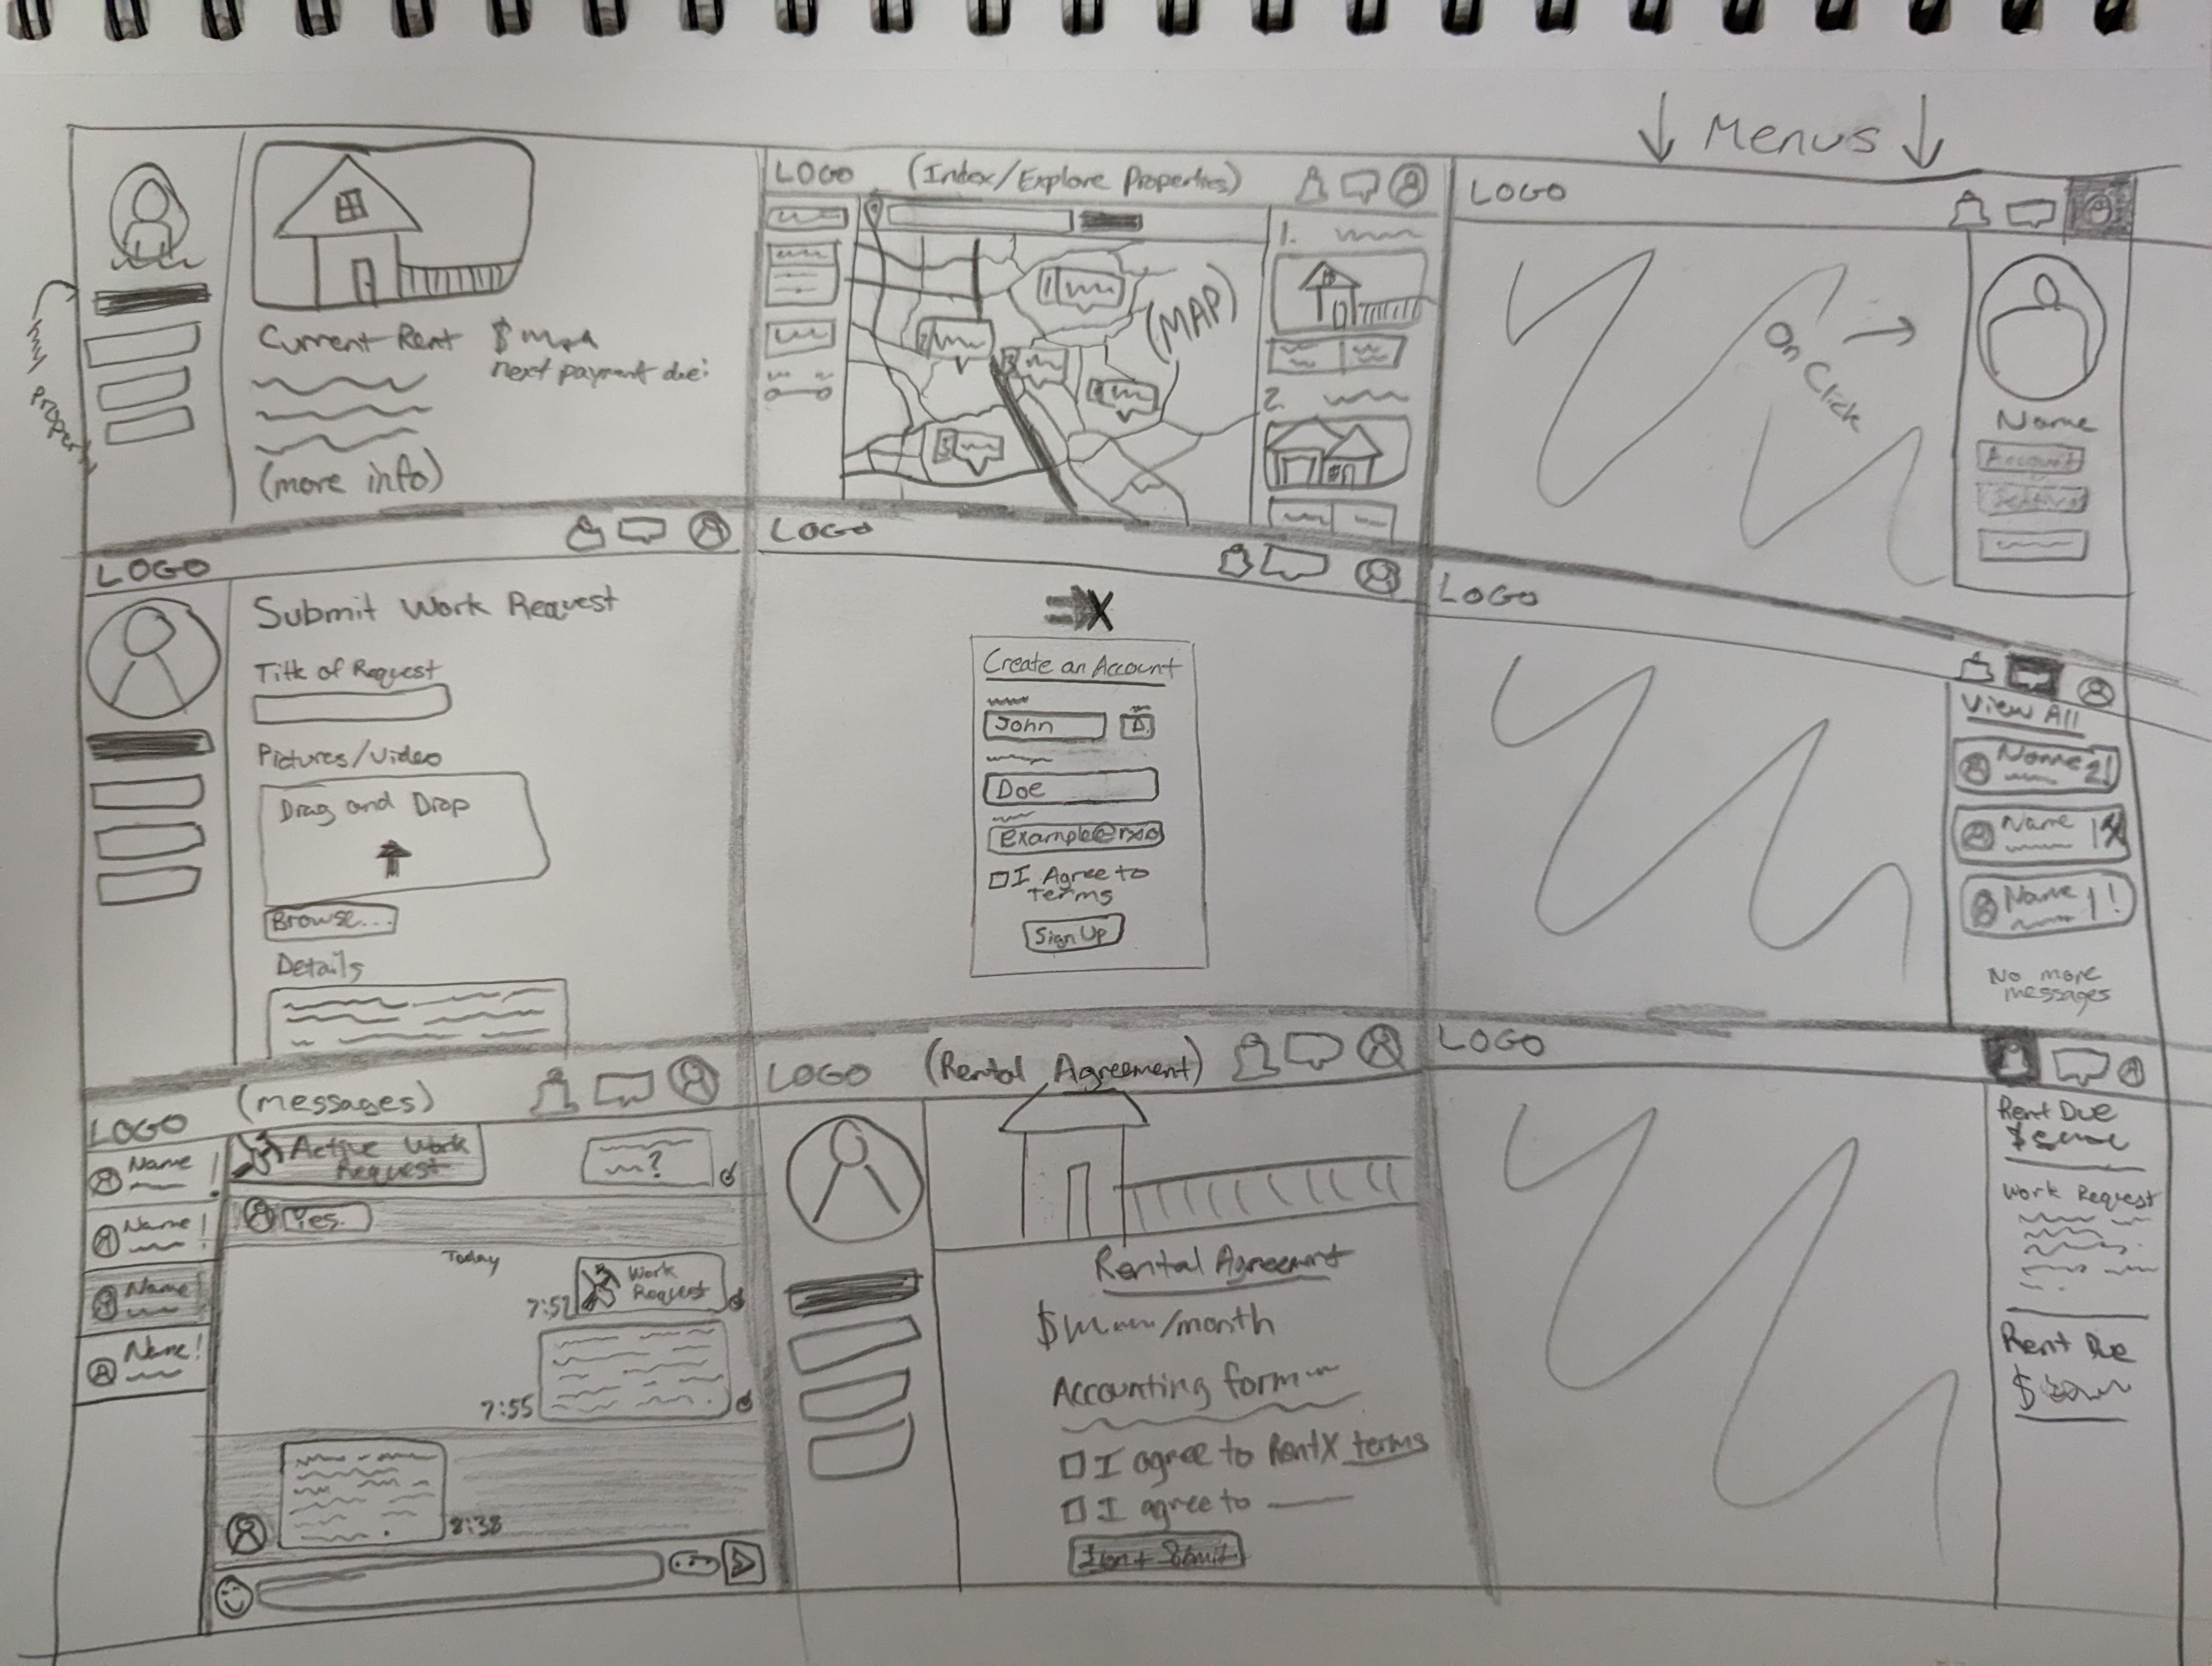 ↓ Menus ↓
my property
Current Rent $
next payment due:
(more info)
LOGO (Index/Explore Properties)
1.
(MAP)
1
2
3
4
5
2.
LOGO
On Click →
Name
Account
LOGO
Submit Work Request
Title of Request
Pictures/Video
Drag and Drop
Browse...
Details
LOGO
X
Create an Account
John
D.
Doe
I Agree to
Terms
Sign Up
LOGO
View All
Name 2!
Name 1
Name 1!
No more
messages
LOGO (messages)
Name !
Name !
Name !
Name !
Active Work
Request
?
Yes.
Today
Work
Request
7:55
8:38
LOGO (Rental Agreement)
Rental Agreement
$ /month
Accounting form
I agree to RentX terms
I agree to
LOGO
Rent Due
$
Work Request
Rent Due
$